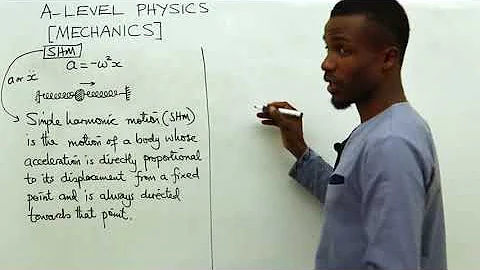 A-LEVEL PHYSICS
[MECHANICS]
SHM
a = -ω²x
a or ẍ
Simple harmonic motion (SHM)
is the motion of a body whose
acceleration is directly proportional
to its displacement from a fixed
point and is always directed
towards that point.